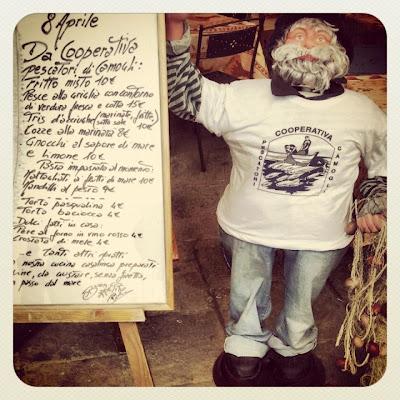 8 Aprile
Da Cooperativa
pescatori di Camogli:
Fritto misto 10€
Pesce alla griglia con contorno
di verdura fresca e cotta 15€
Tris d'acciughe (marinate, fritte,
sotto sale 10€
Cozze alla marinara 8€
Gnocchi al sapore di mare
e limone 10€
Pasta impastata al momento:
ai frutti di mare 10€
Mandilli al pesto 9€
Torta pasqualina 4€
Torta baciocca 4€
Dolci fatti in casa:
Pere al forno in vino rosso 4€
Crostata di mele 4€
e tanti altri piatti
nostra cucina casalinga preparati
da gustare, senza fretta,
passo dal mare
COOPERATIVA
PESCATORI
CAMOGLI